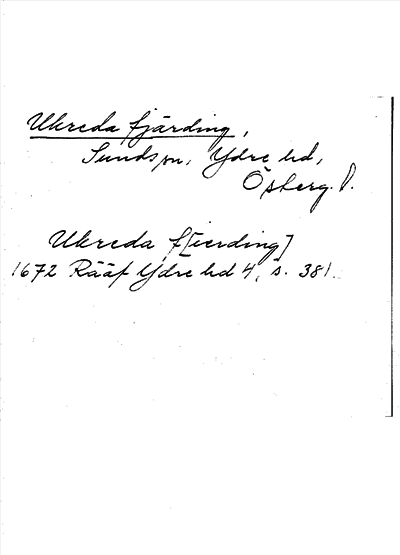 Ukreda fjärding,
Sunds sn, Ydre hd,
Österg. l.
Ukreda f[ierding]
1672 Rääf Ydre hd 4, s. 381.